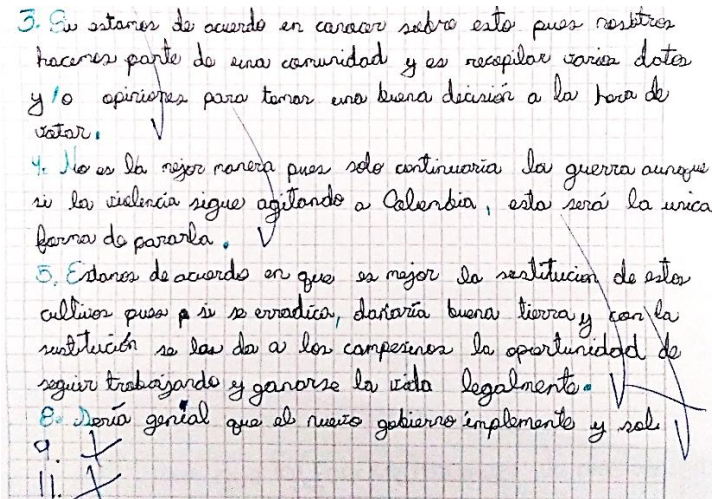 3. Si estamos de acuerdo en conocer sobre esto pues nosotros
hacemos parte de una comunidad y es recopilar varios datos
y/o opiniones para tomar una buena decisión a la hora de
votar.
4. No es la mejor manera pues solo continuaria la guerra aunque
si la violencia sigue agitando a Colombia, esta será la unica
forma de pararla.
5. Estamos de acuerdo en que es mejor la sustitucion de estos
cultivos pues si se erradica, dañaría buena tierra y con la
sustitución se les da a los campesinos la oportunidad de
seguir trabajando y ganarse la vida legalmente.
8. Sería genial que el nuevo gobierno implemente y sol
9.
11.